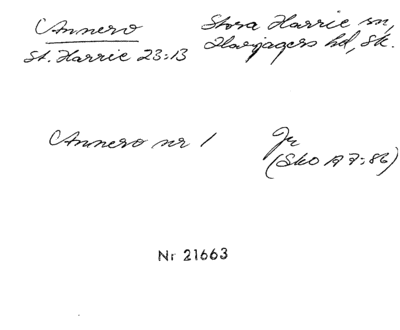 Annero Stora Harrie sn,
St. Harrie 23:13 Harjagers hd, Sk.
Annero nr 1 Jr
(Sko A 7:86)
Nr 21663